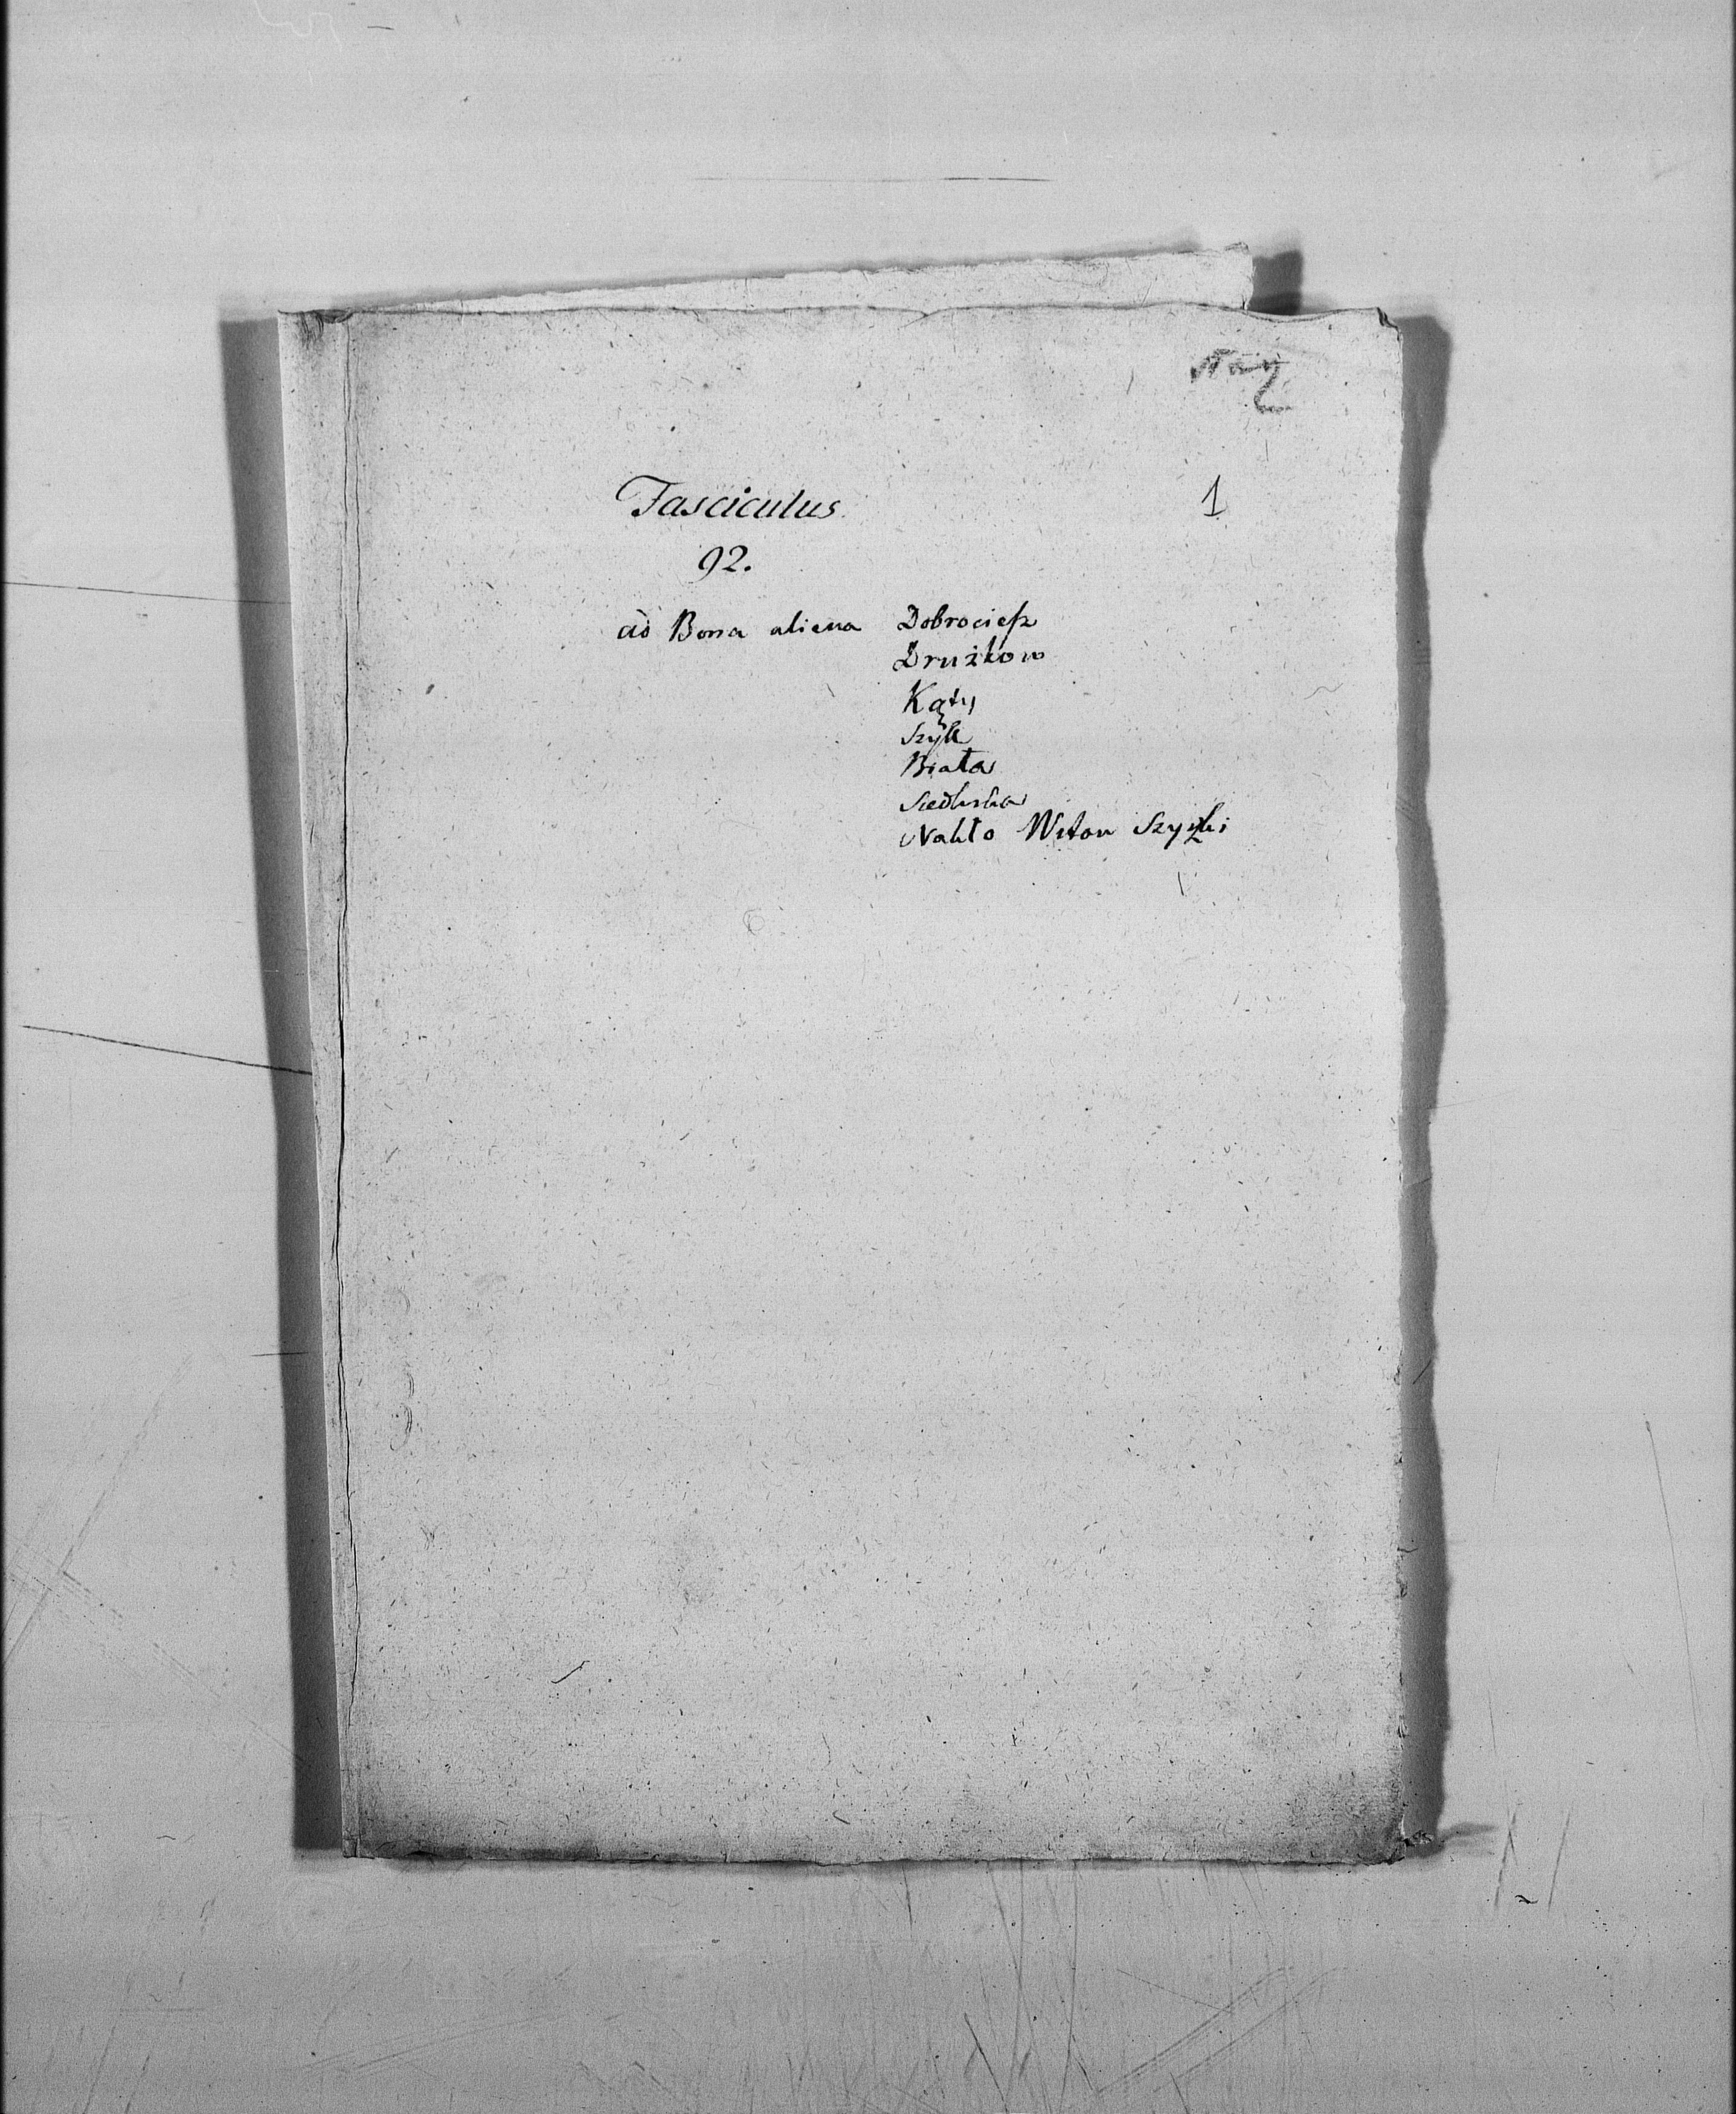 1
Fasciculus
92.
ad Bona aliena Dobrocieſz
Drużkow
Kąty
Szyk
Biała
Siedliska
Nakło Witow Szyszki